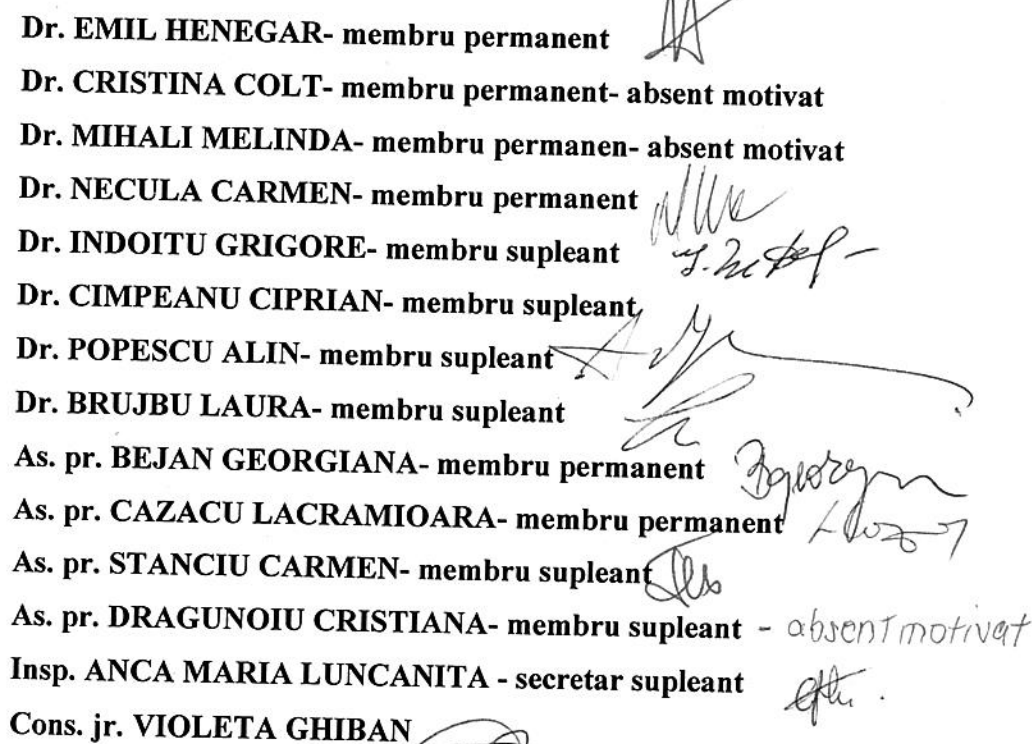 Dr. EMIL HENEGAR- membru permanent
Dr. CRISTINA COLT- membru permanent- absent motivat
Dr. MIHALI MELINDA- membru permanen- absent motivat
Dr. NECULA CARMEN- membru permanent
Dr. INDOITU GRIGORE- membru supleant
Dr. CIMPEANU CIPRIAN- membru supleant
Dr. POPESCU ALIN- membru supleant
Dr. BRUJBU LAURA- membru supleant
As. pr. BEJAN GEORGIANA- membru permanent
As. pr. CAZACU LACRAMIOARA- membru permanent
As. pr. STANCIU CARMEN- membru supleant
As. pr. DRAGUNOIU CRISTIANA- membru supleant - absent motivat
Insp. ANCA MARIA LUNCANITA - secretar supleant
Cons. jr. VIOLETA GHIBAN